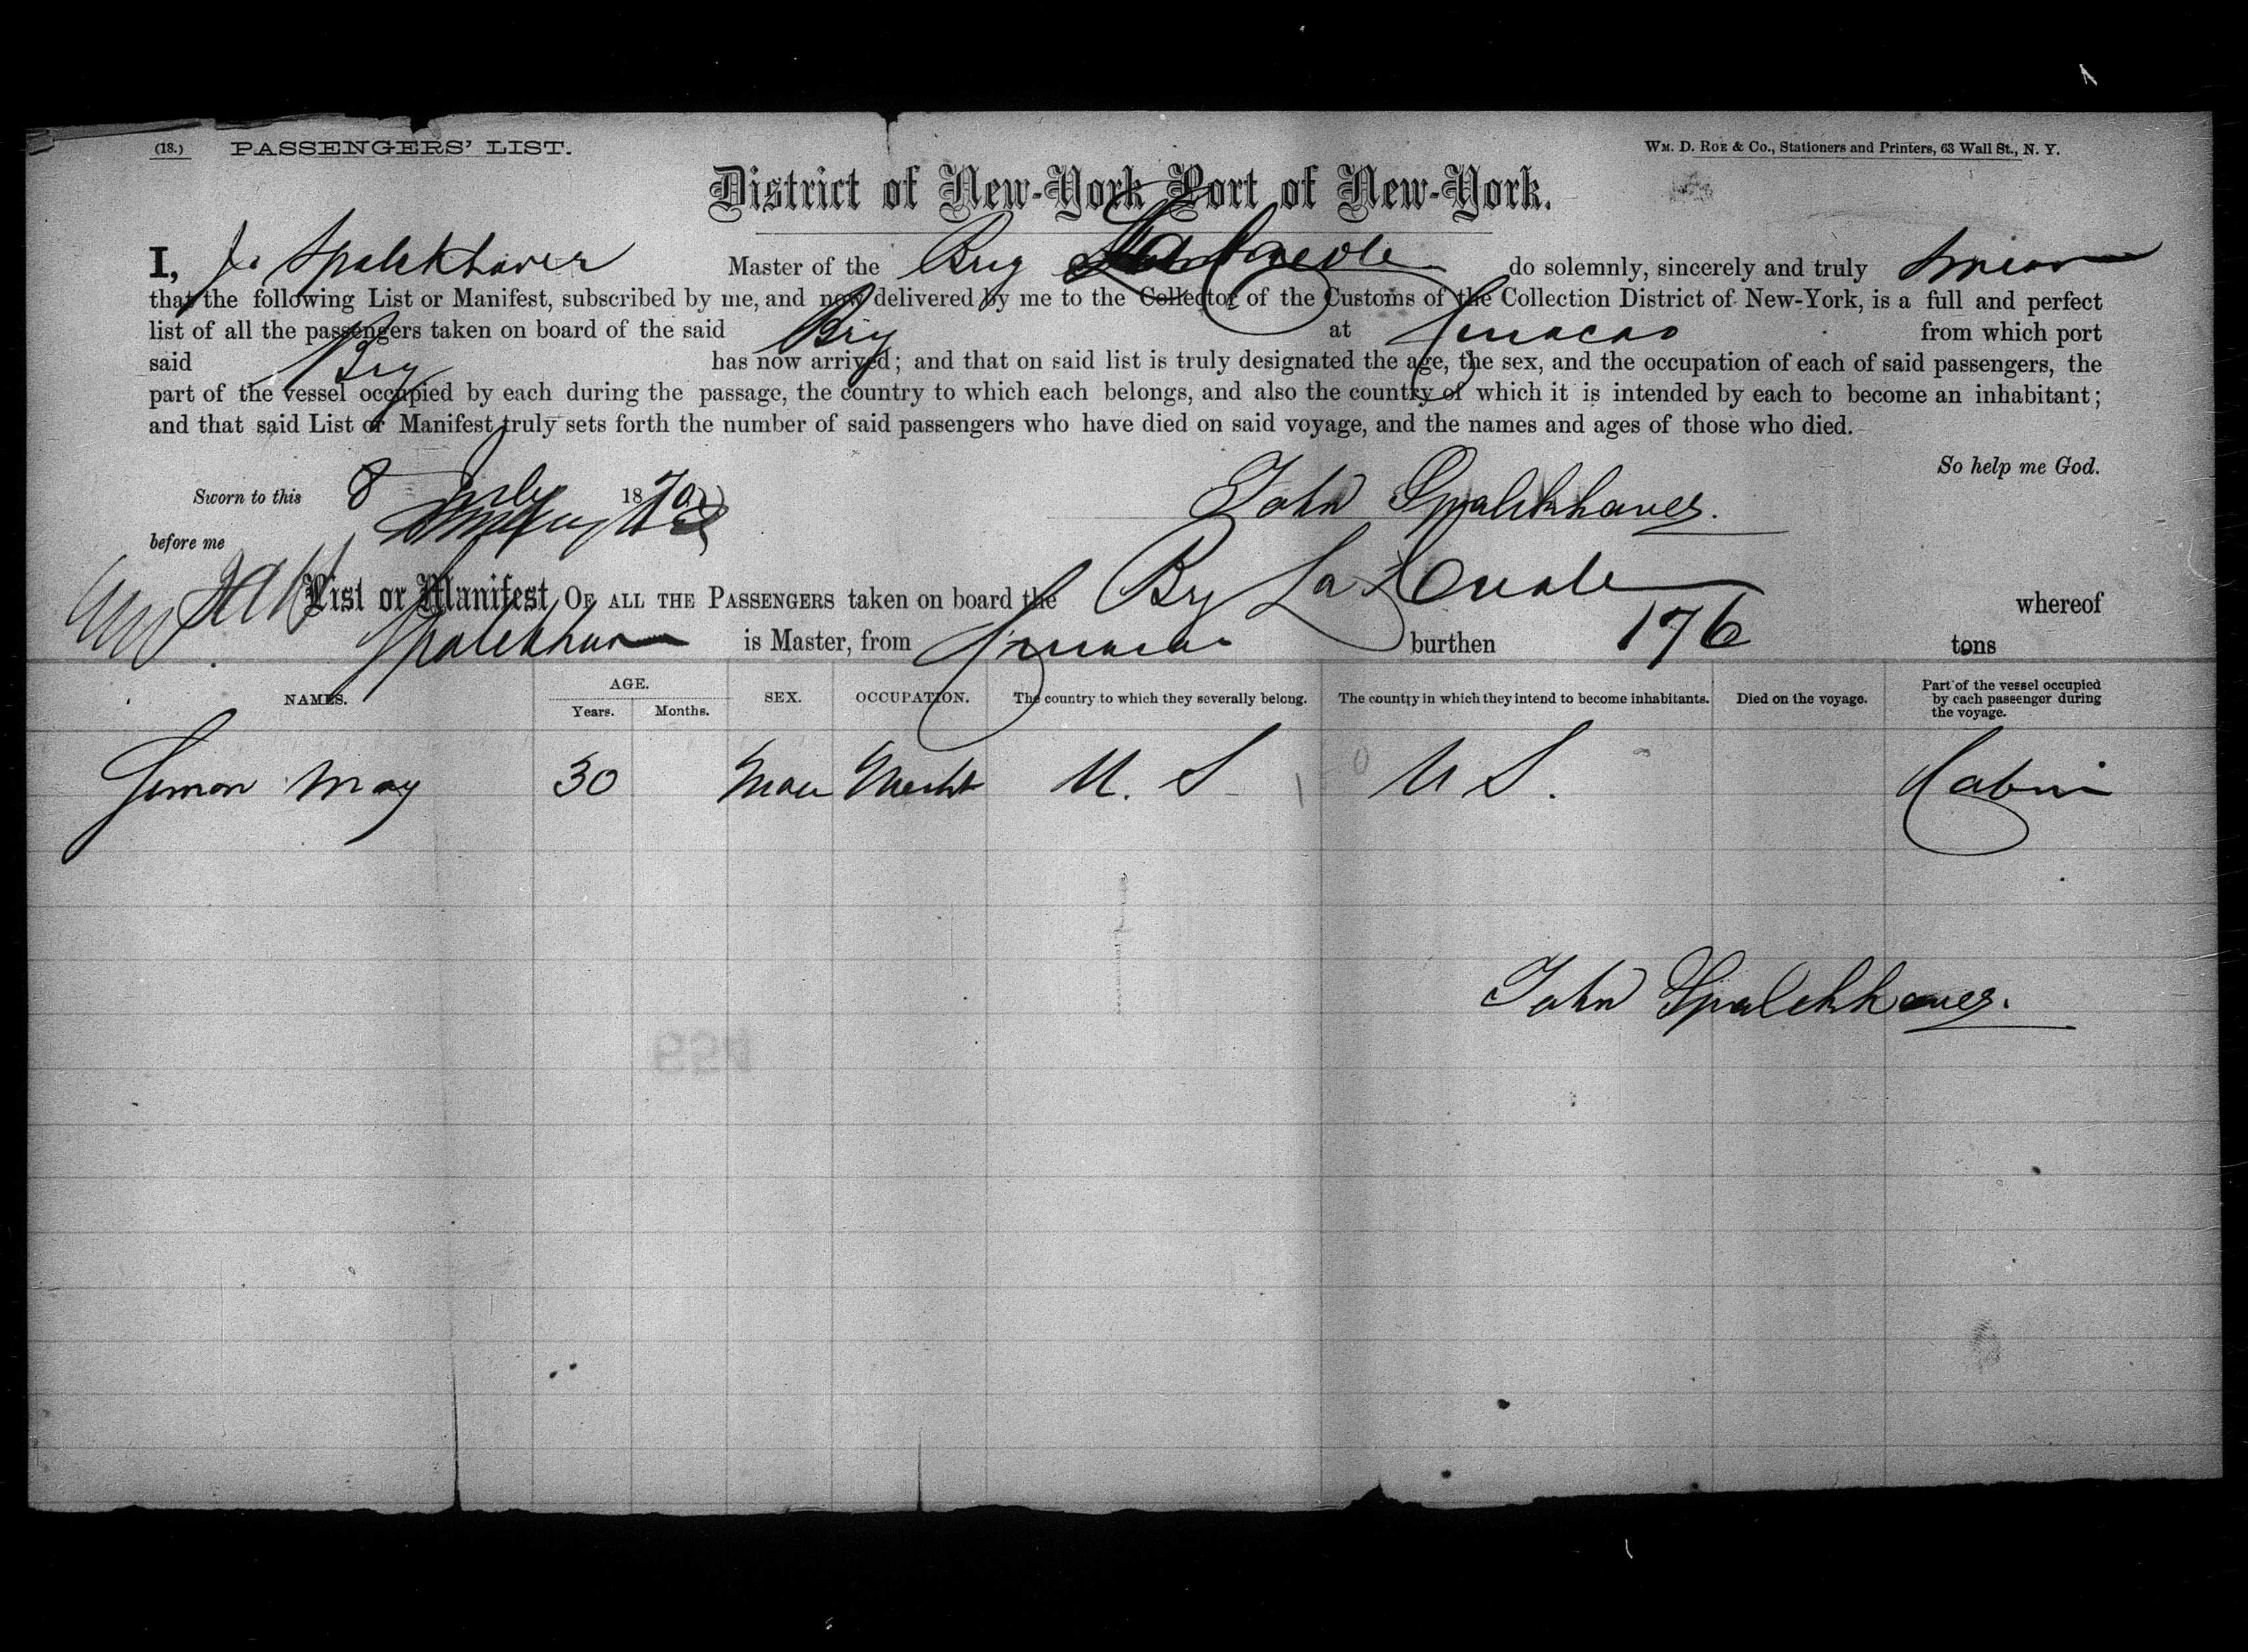 (18.) PASSENGERS' LIST.
WM. D. ROE & CO., Stationers and Printers, 63 Wall St., N. Y.
District of New-York Port of New-York.
I, J. Spalckhaver Master of the Brig do solemnly, sincerely and truly swear
that the following List or Manifest, subscribed by me, and now delivered by me to the Collector of the Customs of the Collection District of New-York, is a full and perfect
list of all the passengers taken on board of the said Brig at Curacao from which port
said Brig has now arrived; and that on said list is truly designated the age, the sex, and the occupation of each of said passengers, the
part of the vessel occupied by each during the passage, the country to which each belongs, and also the country of which it is intended by each to become an inhabitant;
and that said List or Manifest truly sets forth the number of said passengers who have died on said voyage, and the names and ages of those who died.
So help me God.
Sworn to this 8 July 1870
John Spalckhaver.
before me
List or Manifest OF ALL THE PASSENGERS taken on board the Brig La whereof
Spalckhaver is Master, from Curacao burthen 176 tons
NAMES. AGE. Years. Months. SEX. OCCUPATION. The country to which they severally belong. The country in which they intend to become inhabitants. Died on the voyage. Part of the vessel occupied by each passenger during the voyage.
Simon May 30 Male Mercht U. S U S. Cabin
John Spalckhaver.